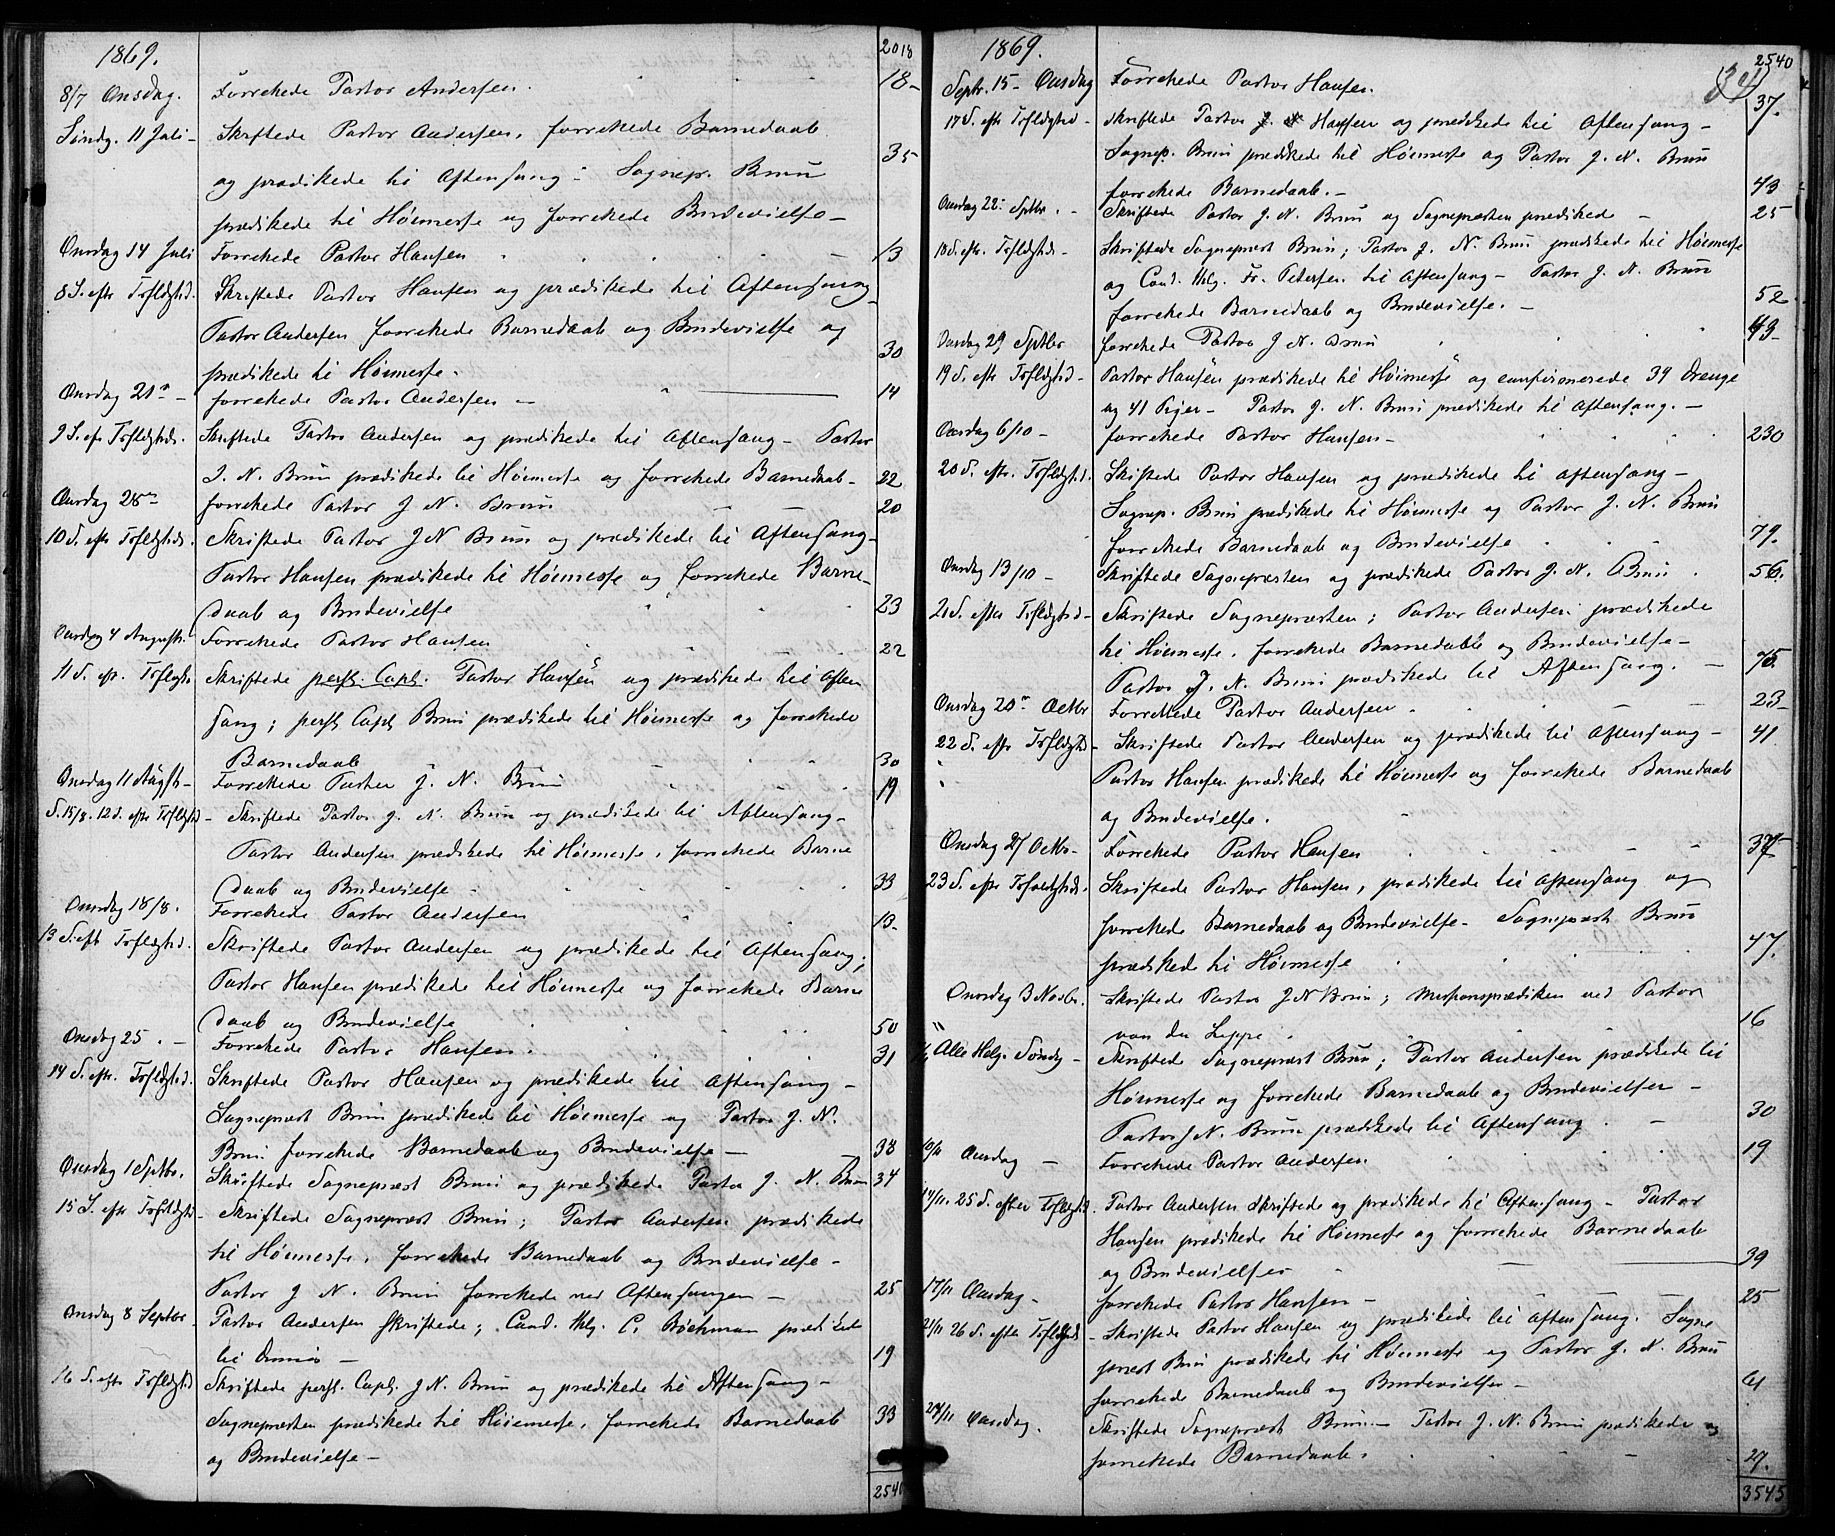 1869.
2018
8/7 Onsdag. Forrettede Pastor Andersen. 18-
Søndg. 11 Juli- Skriftede Pastor Andersen, forrettede Barnedaab
og prædikede til Aftensang - Sognep. Brun 35
prædikede til Høimesse og forrettede Brudevielse-
Onsdag 14 Juli Forrettede Pastor Hansen 13
8 S. eftr Trefldghd. Skriftede Pastor Hansen og prædikede til Aftensang-
Pastor Andersen forrettede Barnedaab og Brudevielse og
prædikede til Høimesse. 30
Onsdag 21de - forrettede Pastor Andersen - 14
9 S. eftr Trefldghds. Skriftede Pastor Andersen og prædikede til Aftensang- Pastor
J. N. Brun prædikede til Høimesse og forrettede Barnedaab- 22
Onsdag 28de forrettede Pastor J N. Brun 20
10 S. eftr Trefldghds. Skriftede Pastor J N Brun og prædikede til Aftensang-
Pastor Hansen prædikede til Høimesse og forrettede Barne-
daab og Brudevielse 23
Onsdag 4 August. Forrettede Pastor Hansen 22
11 S. eft. Trefldgh. Skriftede pers. Capl. Pastor Hansen og prædikede til Aften
sang; pers. Capl. Brun prædikede til Høimesse og forrettede
Barnedaab 30
Onsdag 11 Augst- Forrettede Pastor J. N. Brun 19
S. 15/8. 12 S. eftr Trefldghd - Skriftede Pastor J. N. Brun og prædikede til Aftensang-
Pastor Andersen prædikede til Høimesse, forrettede Barne
daab og Brudevielse - 33
Onsdag 18/8. Forrettede Pastor Andersen 13-
13 S. eft Trefldghd. Skriftede Pastor Andersen og prædikede til Aftensang;
Pastor Hansen prædikede til Høimesse og forrettede Barne
daab og Brudevielse 50
Onsdag 25. - Forrettede Pastor Hansen. 31
14 S. eftr. Trefldghd. Skriftede Pastor Hansen og prædikede til Aftensang-
Sognepræst Brun prædikede til Høimesse og Pastor J. N.
Brun forrettede Barnedaab og Brudevielse - 38
Onsdag 1 Septbr. Skriftede Sognepræst Brun og prædikede Pastor J. N. Brun 34
15 S. eftr Trefldghd- Skriftede Sognepræst Brun; Pastor Andersen prædikede
til Høimesse, forrettede Barnedaab og Brudevielse-
Pastor J N. Brun forrettede ved Aftensangen- 25
Onsdag 8 Septbr- Pastor Andersen skriftede; Cand. thlg. C. Bøckman prædikede
til - 19
16 S. eftr Trefldghd Skriftede pers. Capl. J N. Brun og prædikede til Aftensang-
Sognepræsten prædikede til Høimesse, forrettede Barnedaab 33
og Brudevielse-
2540
1869.
2540
Septr. 15- Onsdag Forrettede Pastor Hansen. 37.
17 S. eftr Trefldghd - Skriftede Pastor Hansen og prædikede til Aftensang-
Sognep. Brun prædikede til Høimesse og Pastor J. N. Brun
forrettede Barnedaab. - 43
Onsdag 22 Septbr. - Skriftede Pastor J. N. Brun og Sognepræsten prædiked - 25
18 S. eftr. Trefldghds - Skriftede Sognepræst Brun; Pastor J. N. Brun prædikede til Høimesse
og Cand. thlg. Fr. Petersen til Aftensang- Pastor J. N. Brun
forrettede Barnedaab og Brudevielse. - 52
Onsdag 29 Septbr forrettede Pastor J N. Brun 43-
19 S. eftr Trefldghd- Pastor Hansen prædikede til Høimesse og confirmerede 39 Drenge
og 41 Piger- Pastor J. N. Brun prædikede til Aftensang. -
Onsdag 6/10 - forrettede Pastor Hansen - 230
20 S. eftr. Trefldghd. Skriftede Pastor Hansen og prædikede til Aftensang-
Sognep. Brun prædikede til Høimesse og Pastor J. N. Brun
forrettede Barnedaab og Brudevielse 79.
Onsdag 13/10 - Skriftede Sognepræsten og prædikede Pastor J. N. Brun 56.
21 S. efter Trefldghd- Skriftede Sognepræsten; Pastor Andersen prædikede
til Høimesse, forrettede Barnedaab og Brudevielse-
Pastor J. N. Brun prædikede til Aftensang. - 75.
Onsdag 20de Octbr Forrettede Pastor Andersen. 23-
22 S. eftr Trefldghd- Skriftede Pastor Andersen og prædikede til Aftensang- 41
Pastor Hansen prædikede til Høimesse og forrettede Barnedaab
og Brudevielse.
Onsdag 27 Octbr- Forrettede Pastor Hansen 37
23 S. eftr Trefoldghds. Skriftede Pastor Hansen, prædikede til Aftensang og
forrettede Barnedaab og Brudevielse- Sognepræst Brun
prædikede til Høimesse 47.
Onsdag 3 Novbr. Skriftede Pastor J N Brun; Missionsprædiken ved Pastor
von der Lippe. 16
Alle Helg. Søndg- Skriftede Sognepræst Brun; Pastor Andersen prædikede til
Høimesse og forrettede Barnedaab og Brudevielser-
Pastor J N. Brun prædikede til Aftensang. - 30
10/11 Onsdag - Forrettede Pastor Andersen 19
14/11. 25 S. efter Trefldghd. Pastor Andersen skriftede og prædikede til Aftensang- Pastor
Hansen prædikede til Høimesse og forrettede Barnedaab
og Brudevielser - 39
17/11 Onsdag- forrettede Pastor Hansen- 25
21/11 26 S. efter Trefldghd- Skriftede Pastor Hansen og prædikede til Aftensang. Sogne
præst Brun prædikede til Høimesse og Pastor J. N. Brun
forrettede Barnedaab og Brudevielser-
24/11 Onsdag. Skriftede Sognepræst Brun- Pastor J. N. Brun prædikede og
forrettede Barnedaab. 27.
3545